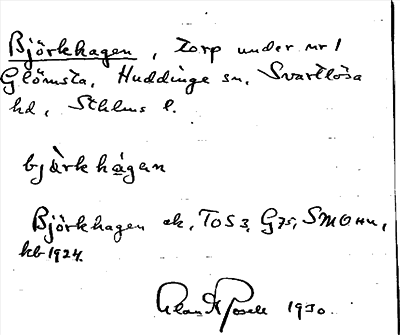 Björkhagen, torp under nr 1
Glömsta, Huddinge sn, Svartlösa
hd, Sthlms l.
bjärkhagan
Björkhagen ek, TOS 3, G75, SMOHu,
kb 1924.
1930.